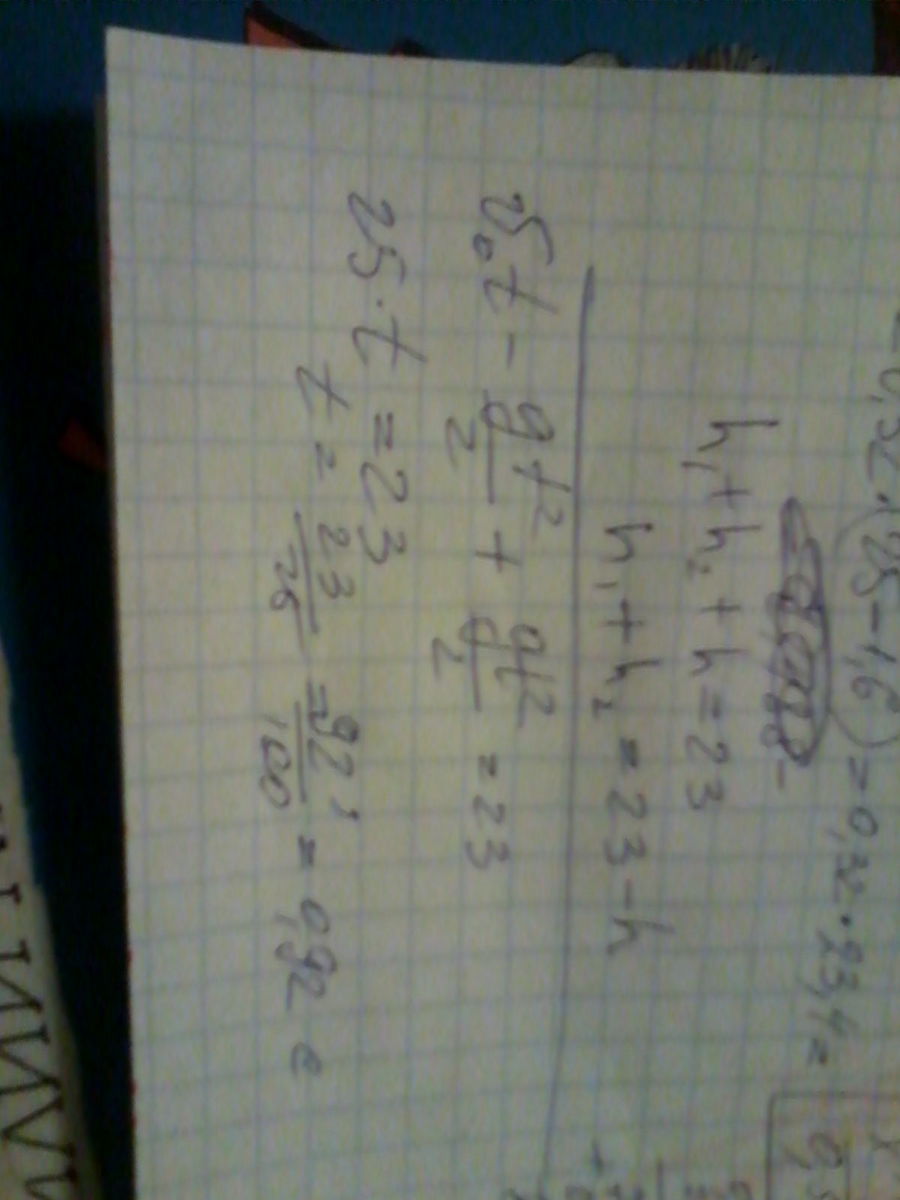 0,32 · (25 - 1,6) = 0,32 · 23,4 =
h₁ + h₂ + h = 23
h₁ + h₂ = 23 - h
v₀t - gt²/2 + gt²/2 = 23
25 · t = 23
t = 23/25 = 92/100 = 0,92 с